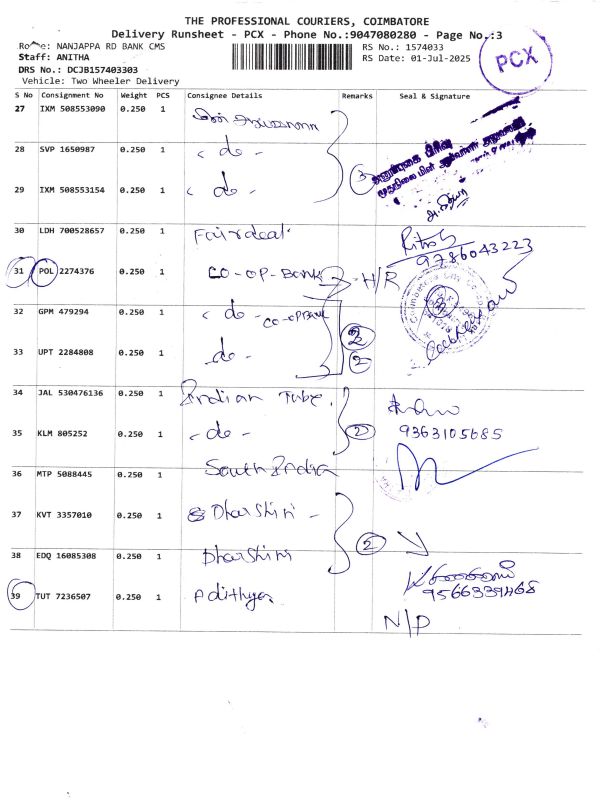 THE PROFESSIONAL COURIERS, COIMBATORE
Delivery Runsheet - PCX - Phone No.:9047080280 - Page No.:3
Route: NANJAPPA RD BANK CMS RS No.: 1574033
Staff: ANITHA RS Date: 01-Jul-2025
DRS No.: DCJB157403303
Vehicle: Two Wheeler Delivery
PCX
S No Consignment No Weight PCS Consignee Details Remarks Seal & Signature
27 IXM 508553090 0.250 1
28 SVP 1650987 0.250 1 - do -
29 IXM 508553154 0.250 1 - do - 3
30 LDH 700528657 0.250 1 Fairdeal
9786043223
31 POL 2274376 0.250 1 CO-OP-BANK - H/R
32 GPM 479294 0.250 1 - do - CO-OPBANK 2
33 UPT 2284808 0.250 1 - do - 2
34 JAL 530476136 0.250 1 Indian Tube.
35 KLM 805252 0.250 1 - do - 2 9363105685
36 MTP 5088445 0.250 1 South India
37 KVT 3357010 0.250 1 Dharshini -
38 EDQ 16085308 0.250 1 Dharshini 2
39 TUT 7236507 0.250 1 Adithya 9566339468
N/P